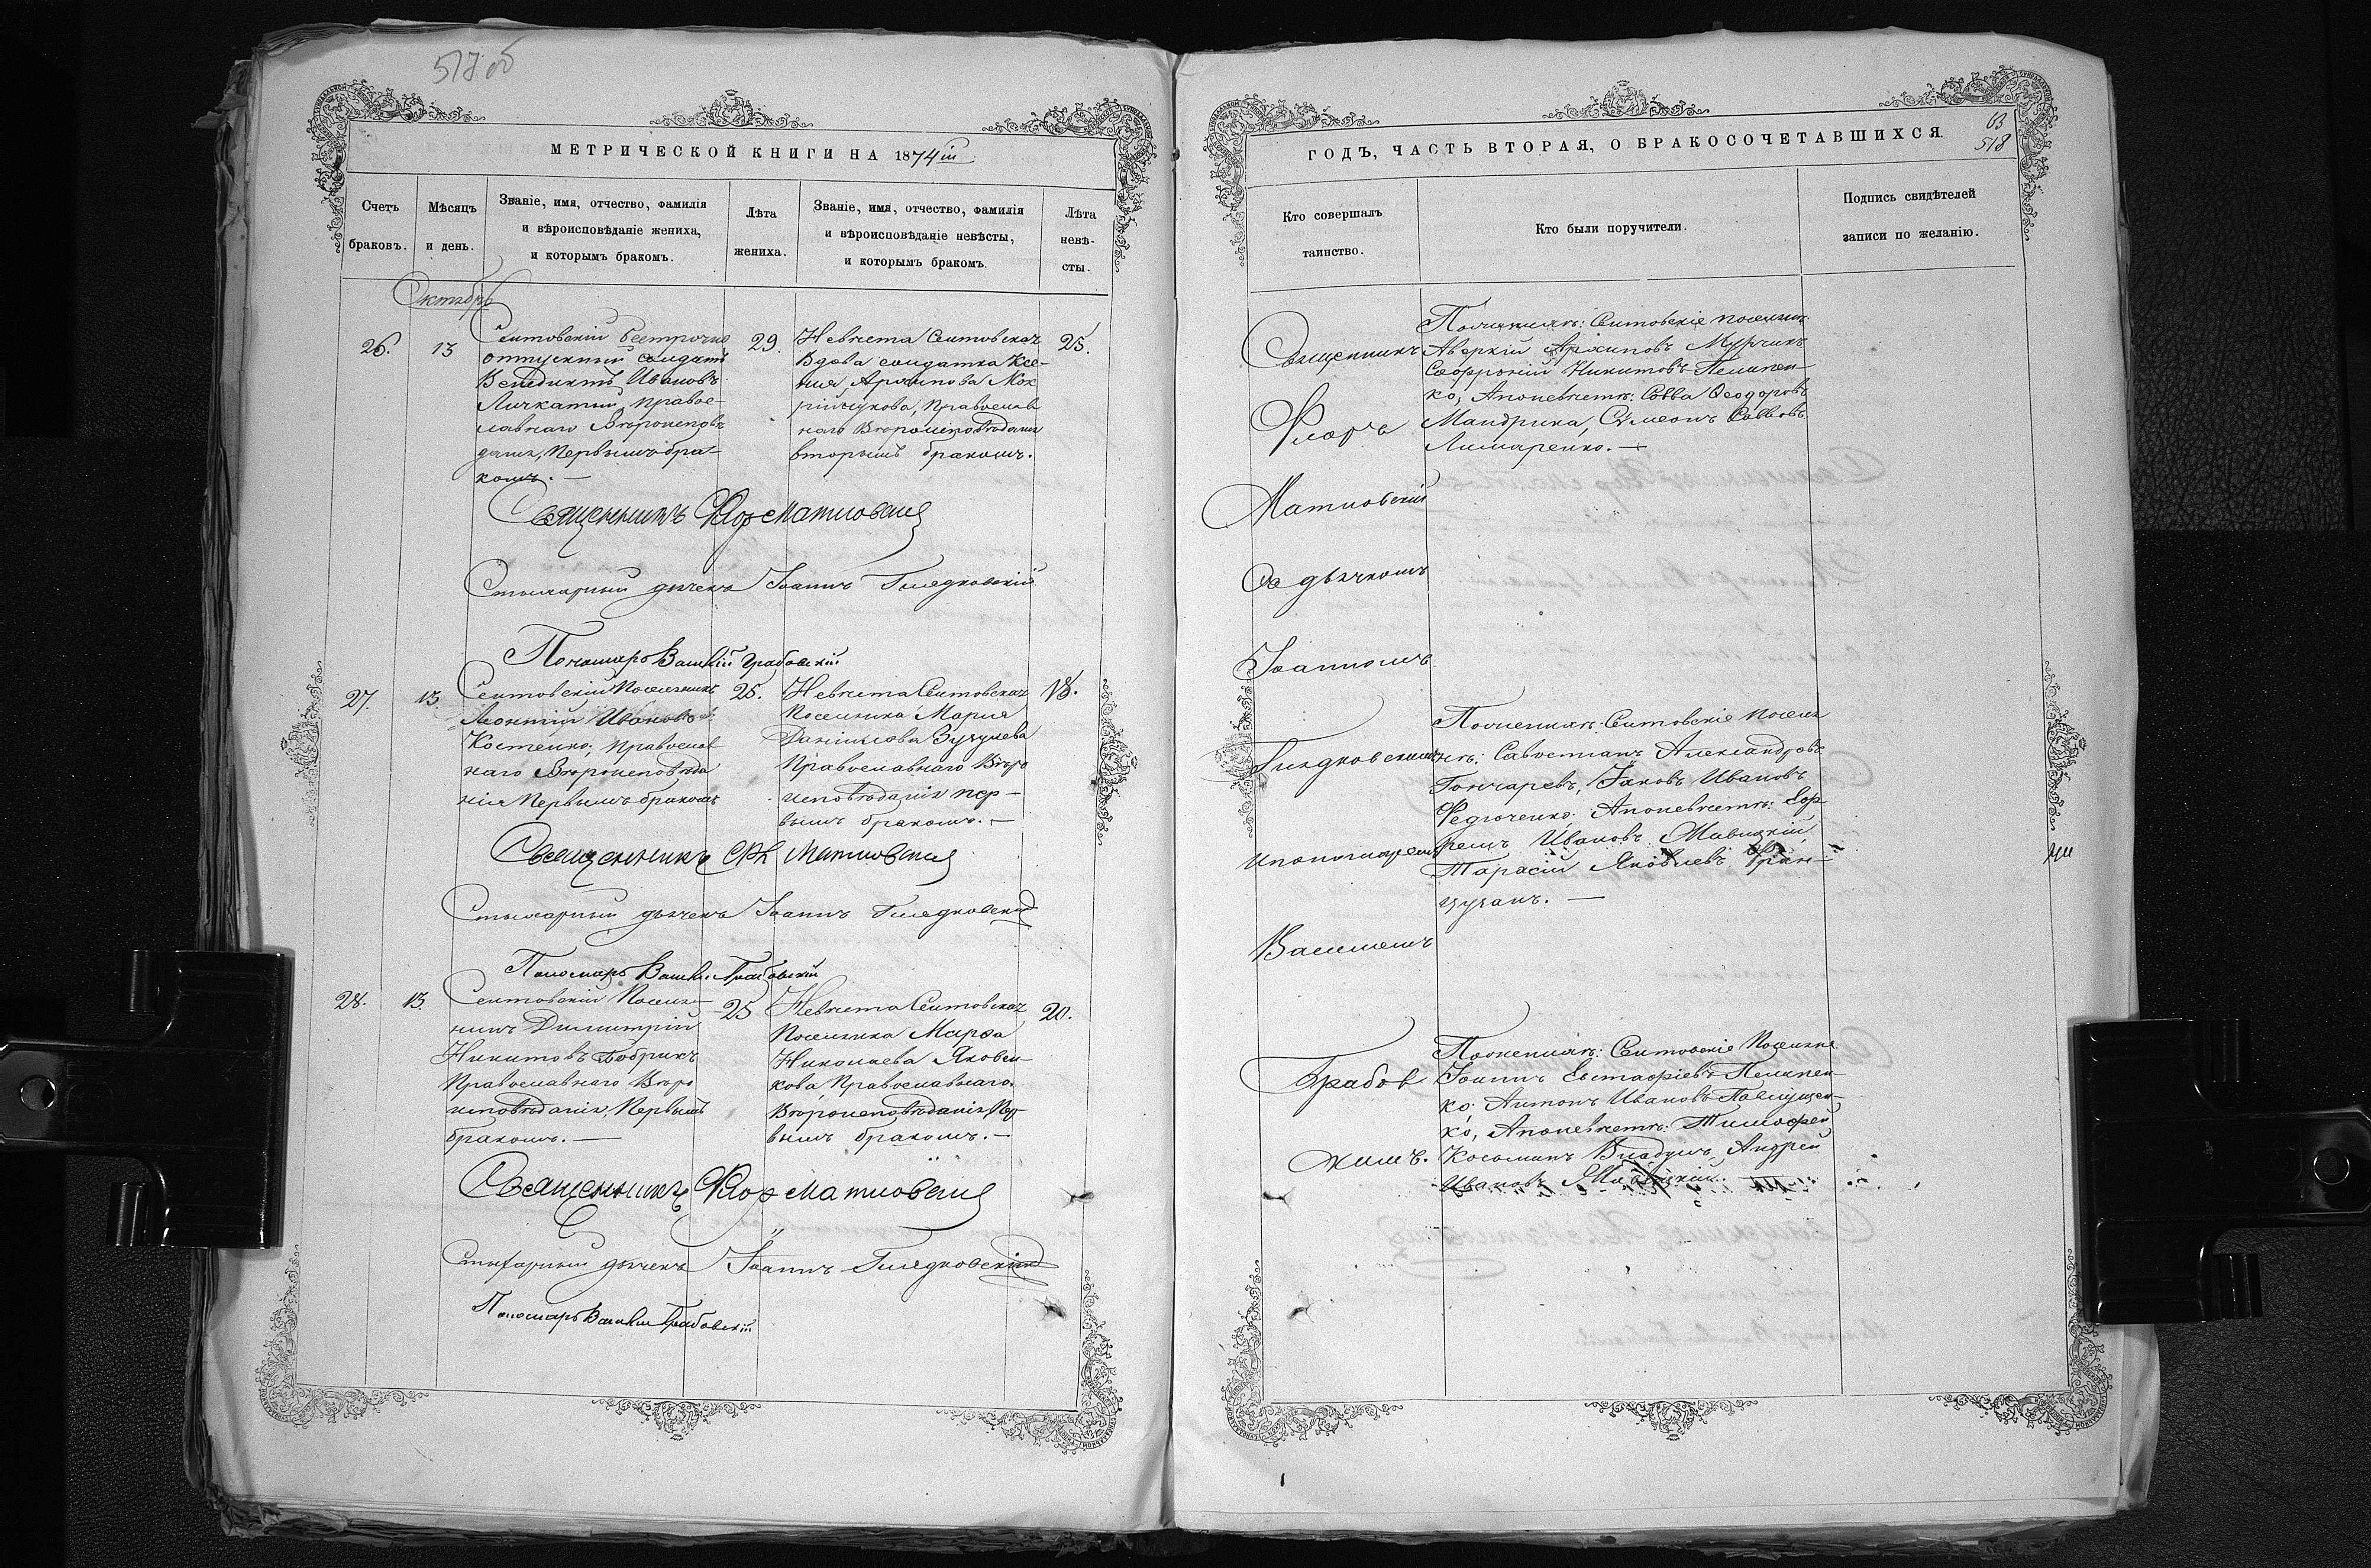 517 об
МЕТРИЧЕСКОЙ КНИГИ НА 1874 ій
Счетъ браковъ.
Мѣсяцъ и день.
Званіе, имя, отчество, фамилія
и вѣроисповѣданіе жениха,
и которымъ бракомъ.
Лѣта
жениха.
Званіе, имя, отчество, фамилія
и вѣроисповѣданіе невѣсты,
и которымъ бракомъ.
Лѣта
невѣ-
сты.
Октябрь
26.
13
Сентовскій безсрочно
отпускный солдатъ
Венедиктъ Ивановъ
Личкатый, православ-
наго Вѣроисповѣ
данія, Первымъ бра-
комъ. —
29.
Невѣста Сентовская
Вдова солдатка Ксе-
нія, Архипова Мок
рійчукова, Православ
наго Вѣроисповѣданія
вторымъ бракомъ.
25.
Священникъ Флоръ Матковскій
Стихарный дьячекъ Іоаннъ Гнядковскій
Пономарь Василій Грабовскій
27.
13.
Сентовскій Поселянинъ
Леонтій Ивановъ
Костенко, Православ
наго Вѣроисповѣда
нія Первымъ бракомъ
25.
Невѣста Сентовская
Поселянка Марія
Даніилова Зузулева
Православнаго Вѣро
исповѣданія пер-
вымъ бракомъ. —
18.
Священникъ Фл Матковскій
Стихарный дьячекъ Іоаннъ Гнядковскій
Пономарь Васил. Грабовскій
28.
13.
Сентовскій Поселя-
нинъ Димитрій
Никитовъ Бобрикъ
Православнаго Вѣро
исповѣданія, Первымъ
бракомъ. —
25
Невѣста Сентовская
Поселянка Марѳа
Николаева Яковен-
кова Православнаго
Вѣроисповѣданія Пер-
вымъ бракомъ. —
20.
Священникъ Флоръ Матковскій
Стихарный дьячекъ Іоаннъ Гнядковскій
Пономарь Василій Грабовскій
63
518
ГОДЪ, ЧАСТЬ ВТОРАЯ, О БРАКОСОЧЕТАВШИХСЯ.
Кто совершалъ
таинство.
Кто были поручители.
Подпись свидѣтелей
записи по желанію.
Священникъ
Флоръ
Матковскій
Съ дьячкомъ
Іоанномъ
Гнядковскимъ
и пономаремъ
Василіемъ
Грабов
скимъ.
По женихѣ: Сентовскіе поселяне
Аверкій Архиповъ
Софроній Никитовъ Пелипен-
ко, А по невѣстѣ: Савва Ѳеодоровъ
Мандрика, Сѵмеонъ Саввовъ
Лимаренко. —
По женихѣ: Сентовскіе Поселя
не: Савостіанъ Александровъ
Гончаревъ, Іаковъ Ивановъ
Федюченко А по невѣстѣ: Ефр
ремъ Ивановъ
Тарасій Яковлевъ Фран-
цузанъ. —
По женихѣ: Сентовскіе Поселяне
Іоаннъ Евстафіевъ Пелипен-
ко, Антонъ Ивановъ Павлущен-
ко, А по невѣстѣ: Тимофей
Косьминъ Андрей
Ивановъ